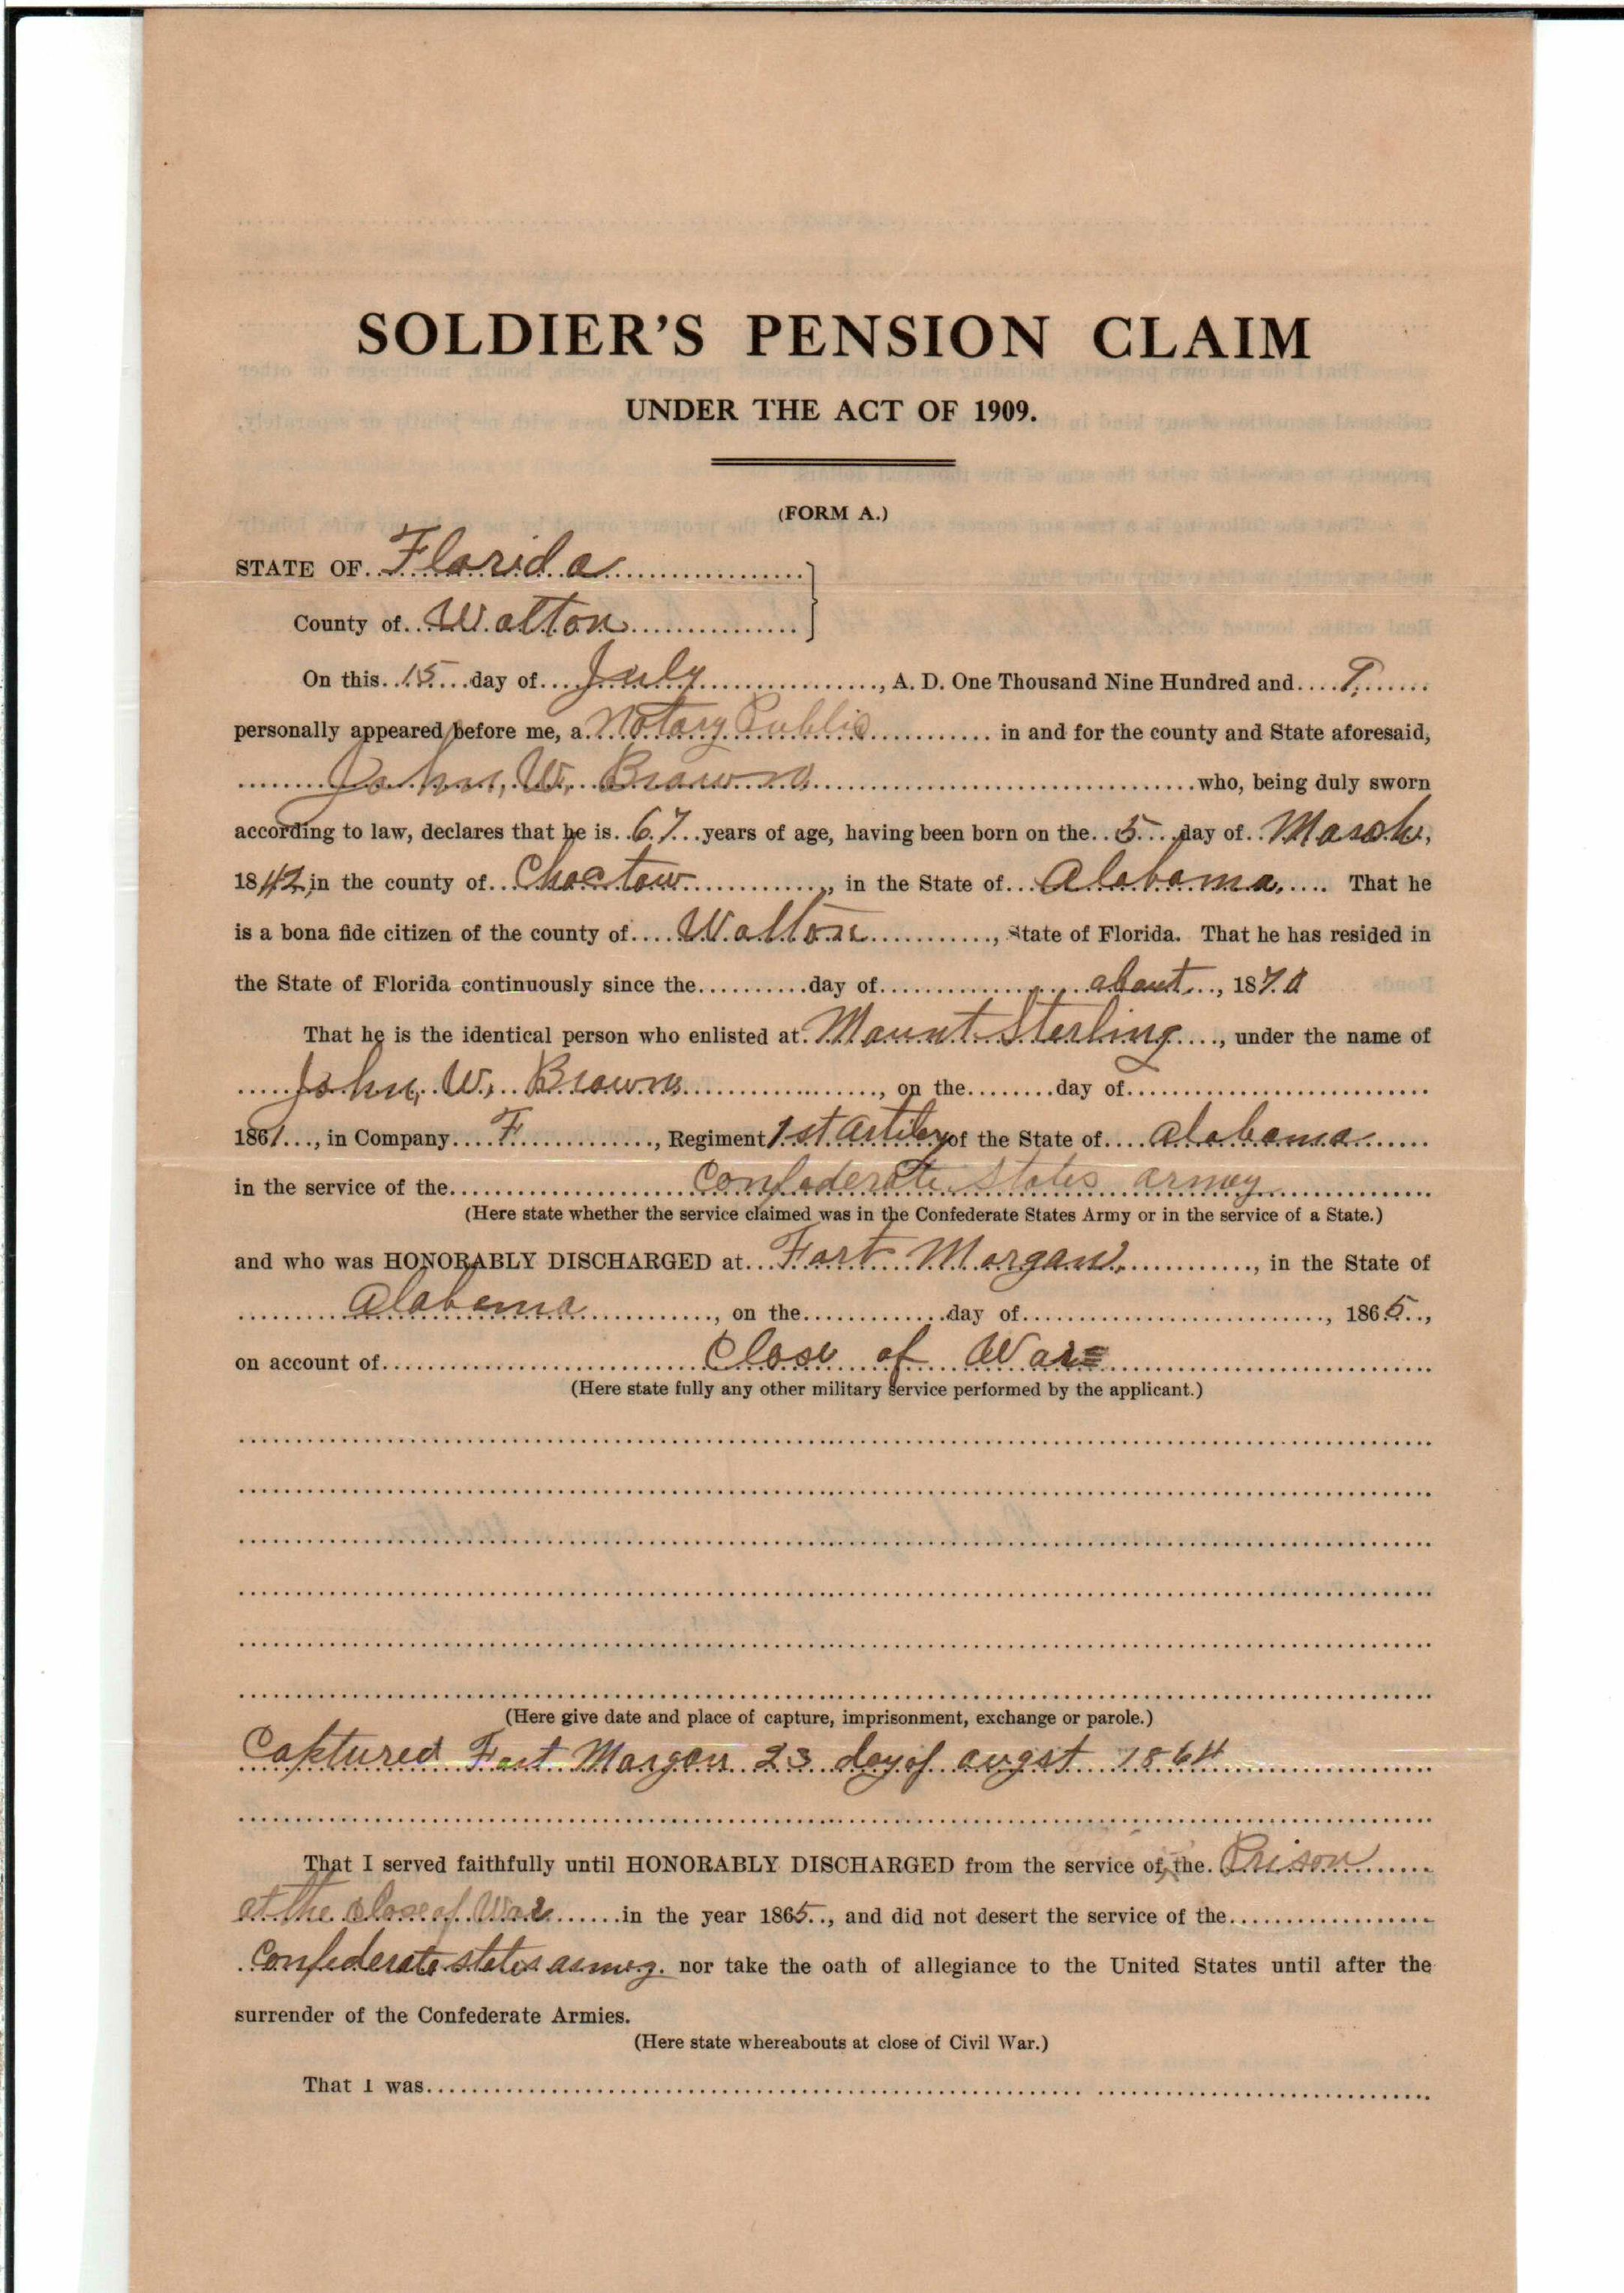 SOLDIER'S PENSION CLAIM
UNDER THE ACT OF 1909.
(FORM A.)
STATE OF Florida
County of Walton
On this 15 day of July, A. D. One Thousand Nine Hundred and 9
personally appeared before me, a Notary Public in and for the county and State aforesaid,
John, W. Brown who, being duly sworn
according to law, declares that he is 67 years of age, having been born on the 5 day of March,
1842, in the county of Choctaw, in the State of Alabama. That he
is a bona fide citizen of the county of Walton, State of Florida. That he has resided in
the State of Florida continuously since the day of about, 1870
That he is the identical person who enlisted at Mount Sterling, under the name of
John, W. Brown, on the day of
1861, in Company F, Regiment 1st of the State of Alabama
in the service of the Confederate States army
(Here state whether the service claimed was in the Confederate States Army or in the service of a State.)
and who was HONORABLY DISCHARGED at Fort Morgan, in the State of
Alabama, on the day of, 1865,
on account of Close of War
(Here state fully any other military service performed by the applicant.)
(Here give date and place of capture, imprisonment, exchange or parole.)
Captured Fort Morgan 23 day of augst 1864
That I served faithfully until HONORABLY DISCHARGED from the service of the Prison
at the close of War in the year 1865, and did not desert the service of the
Confederate states army nor take the oath of allegiance to the United States until after the
surrender of the Confederate Armies.
(Here state whereabouts at close of Civil War.)
That I was